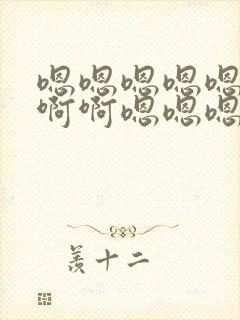 嗯嗯嗯嗯嗯
啊啊嗯嗯嗯
羡十二